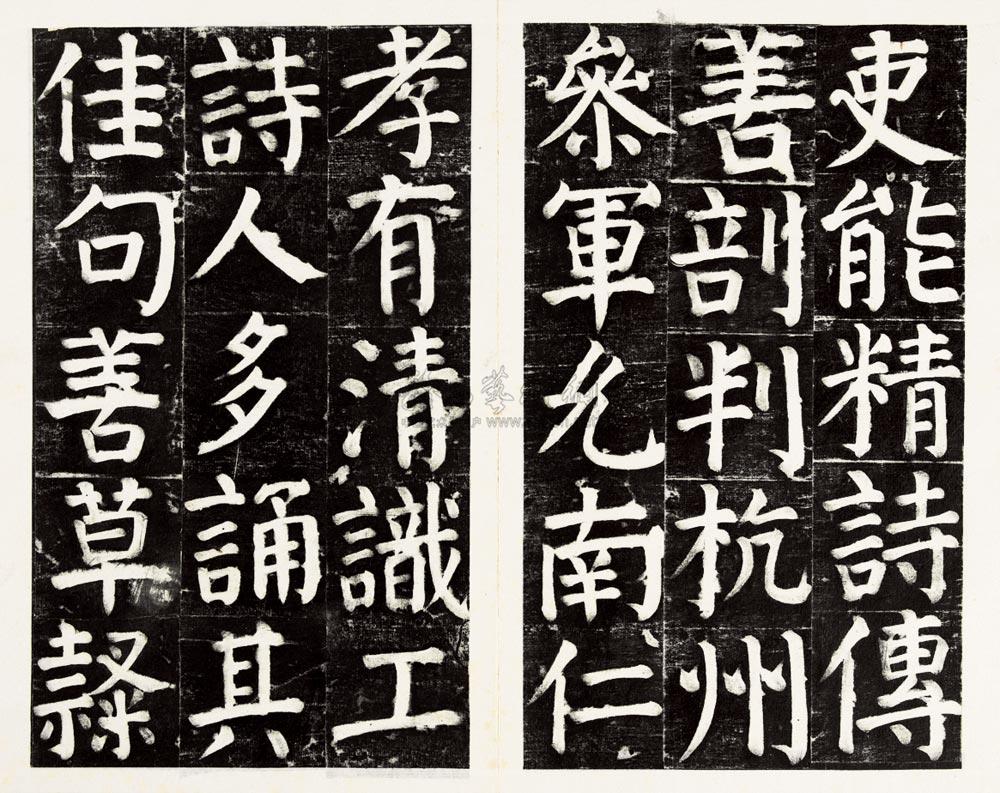 吏能精詩傳
善剖判杭州
叅軍允南仁
孝有清識工
詩人多誦其
佳句善草隸